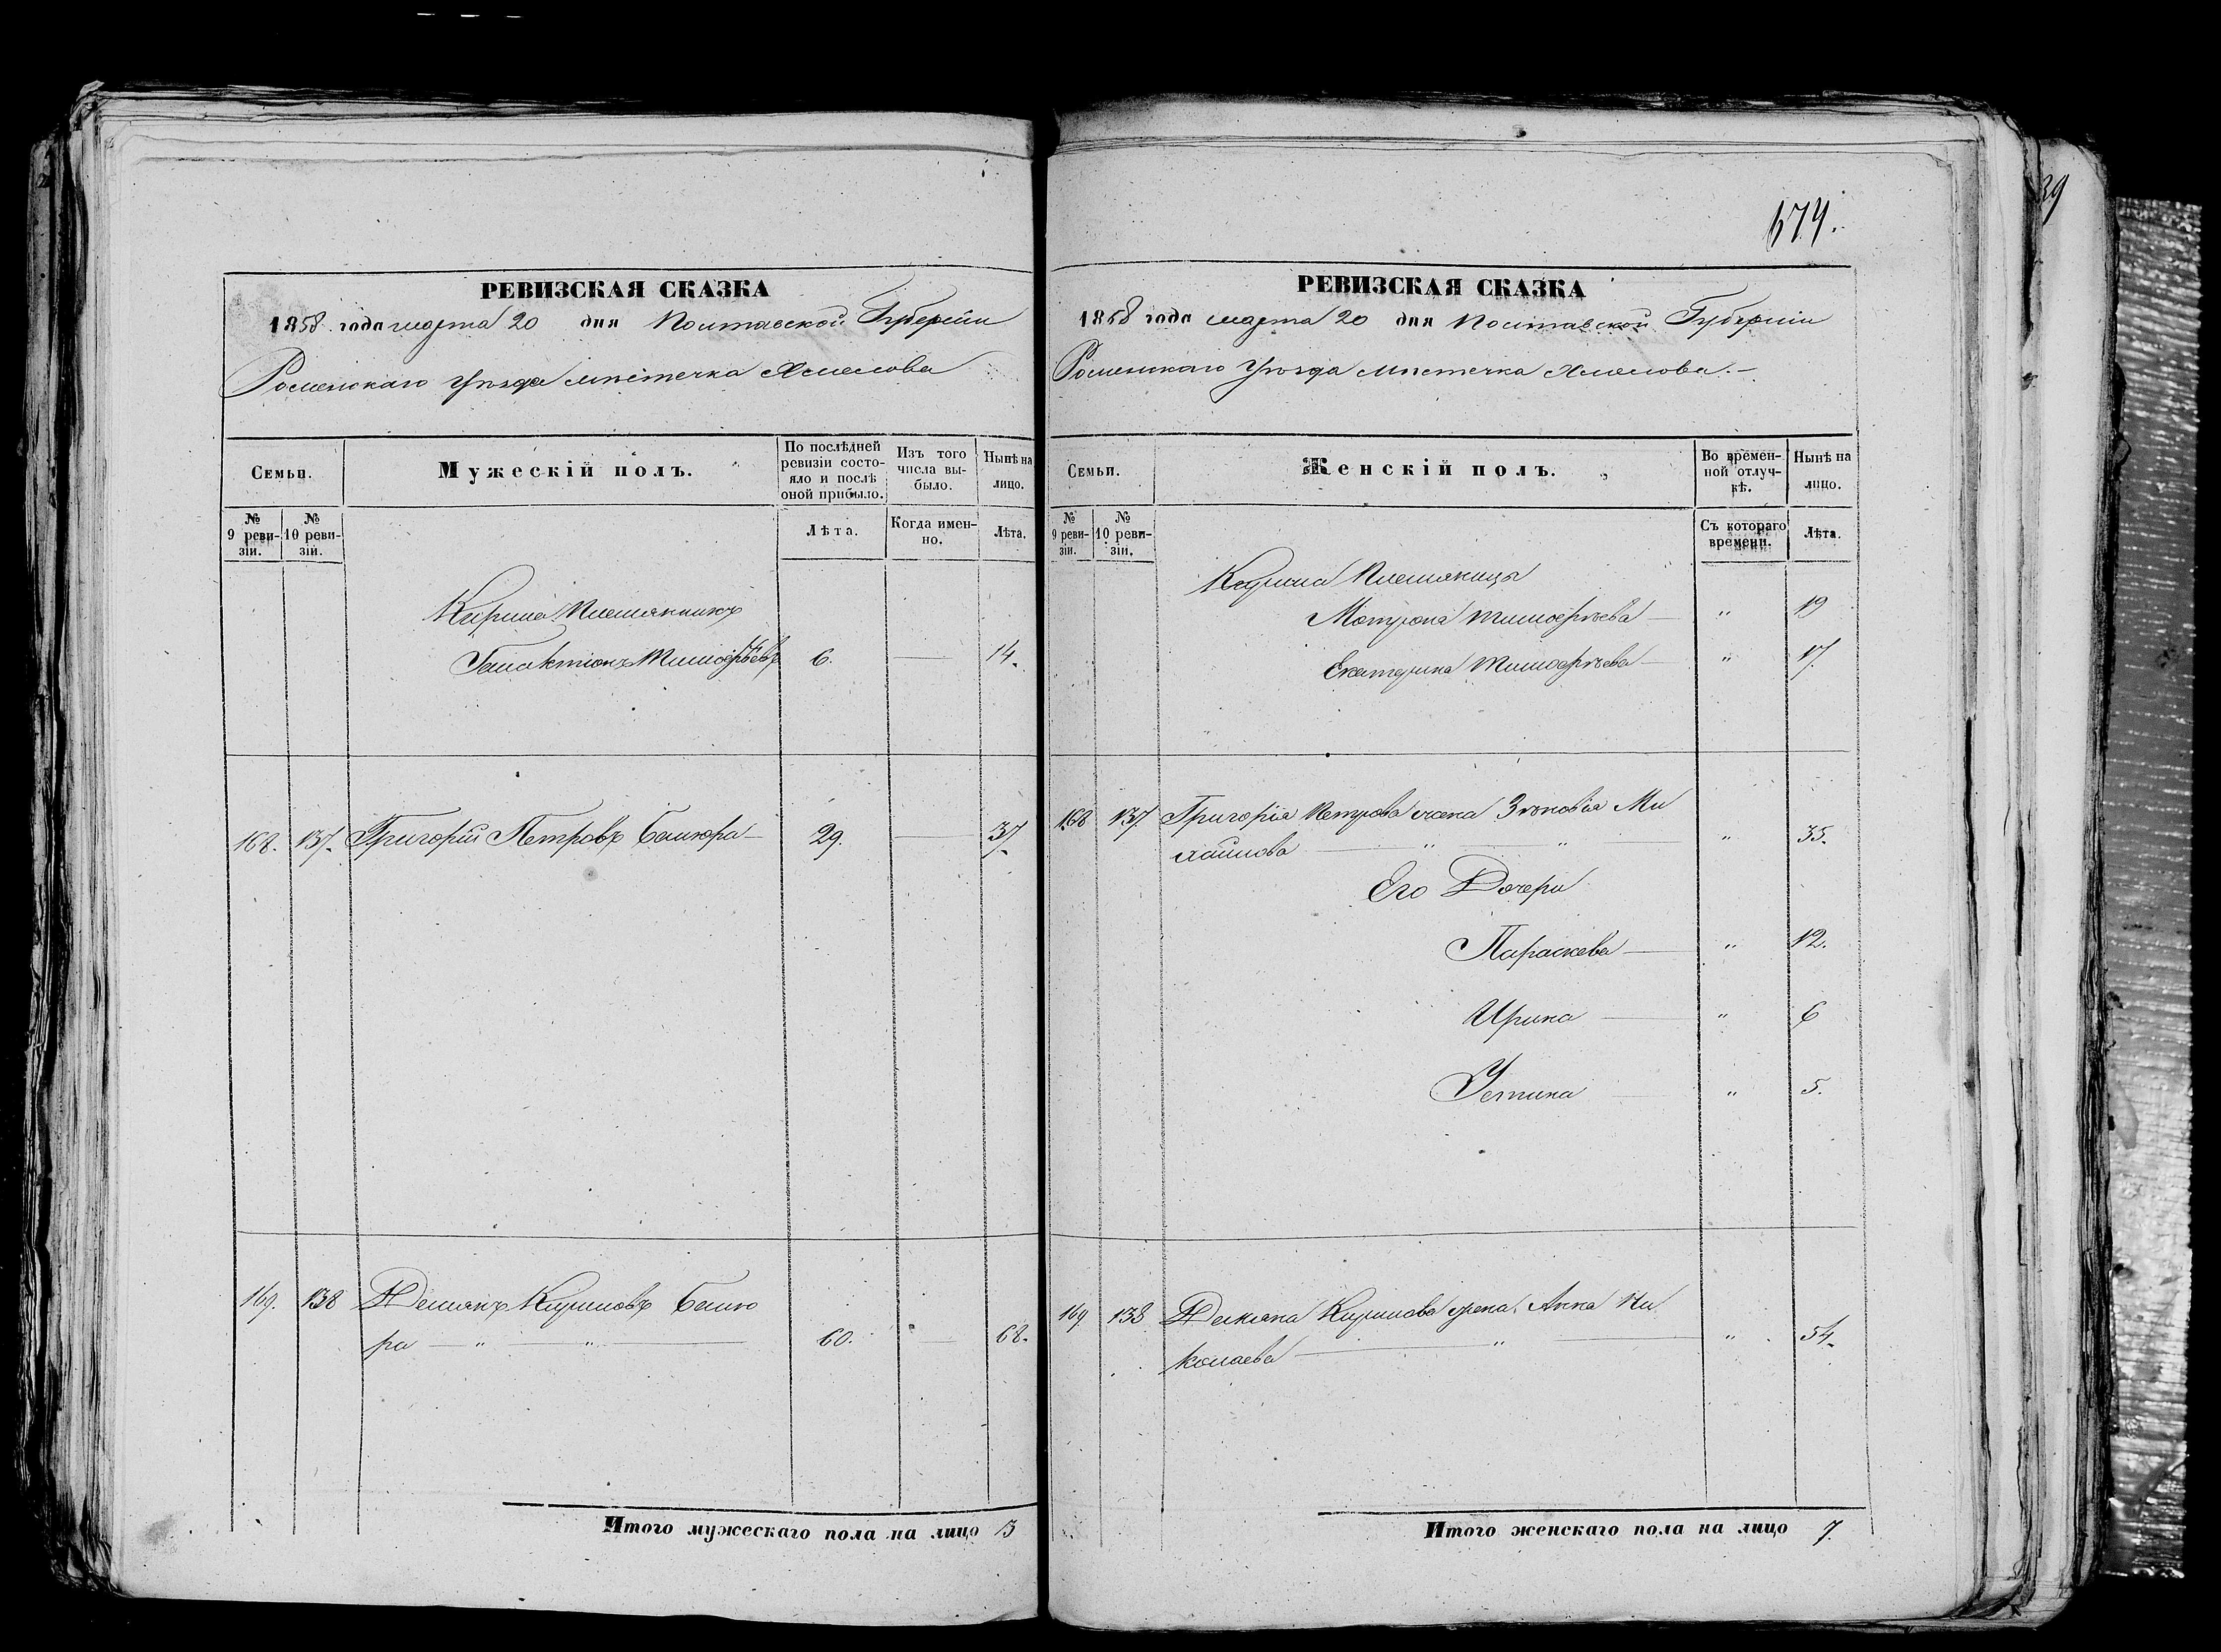 РЕВИЗСКАЯ СКАЗКА
1858 года марта 20 дня Полтавской Губерніи
Роменскаго Уѣзда мѣстечка Хмелова
Семьи.
Мужескій полъ.
По послѣдней ревизіи состояло и послѣ оной прибыло.
Изъ того числа выбыло.
Нынѣ на лицо.
№ 9 ревизіи.
№ 10 ревизіи.
Лѣта.
Когда именно.
Лѣта.
Кирила Племянникъ
Галактіонъ Тимофѣевъ 6. 14.
168. 137. Григорій Петровъ Башкора 29. 37.
169. 138 Демянъ Кириловъ Башко
ра — " — " — 60. 68.
Итого мужескаго пола на лицо 3
674.
39
РЕВИЗСКАЯ СКАЗКА
1858 года марта 20 дня Полтавской Губерніи
Роменскаго Уѣзда мѣстечка Хмелова.—
Семьи.
Женскій полъ.
Во временной отлучкѣ.
Нынѣ на лицо.
№ 9 ревизіи.
№ 10 ревизіи.
Съ котораго времени.
Лѣта.
Кирила Племяницы
Мотрона Тимофѣева — " 19
Екатерина Тимофѣева — " 17.
168 137. Григорія Петрова жена Зѣновія Ми
хайлова — " — " — " 35.
Его Дочери
Параскева — " 12.
Ирина — " 6
Устина — " 5.
169 138 Демяна Кирилова жена Анна Ни
колаева — " — " 54.
Итого женскаго пола на лицо 7.